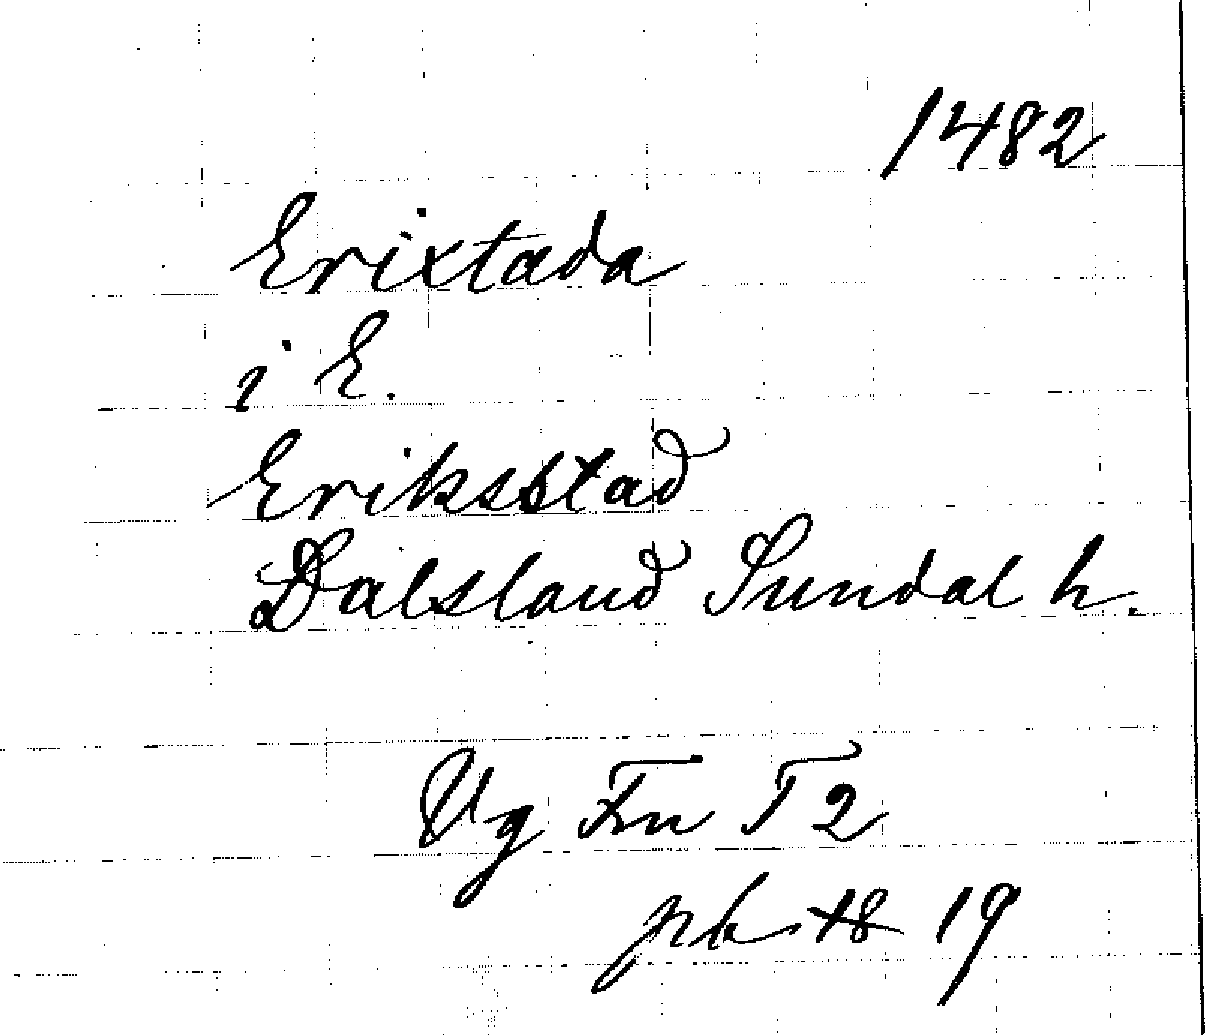 1482
Erixtada
i E.
Eriksstad
Dalsland Sundal h.
Vg Fn T 2
pb 18 19